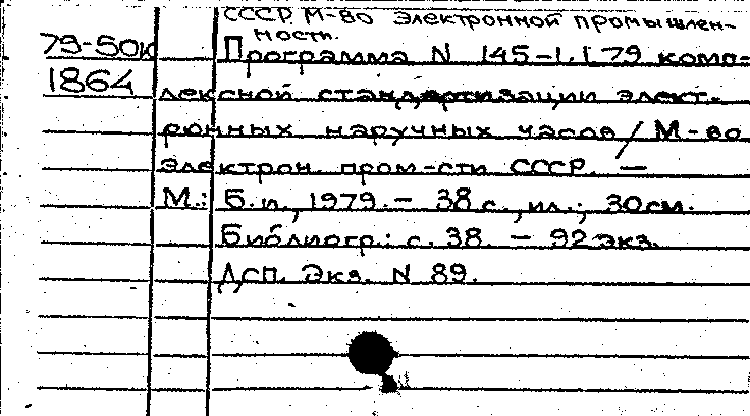 СССР. М-во электронной промышлен-
ности.
79-50к Программа N 145-1.1.79 комп-
1864 лексной стандартизации элект-
ронных наручных часов / М-во
электрон. пром-сти СССР. —
М.: Б.и., 1979. - 38 с., ил.; 30 см.
Библиогр.: с. 38. - 92 экз.
Дсп. Экз. N 89.